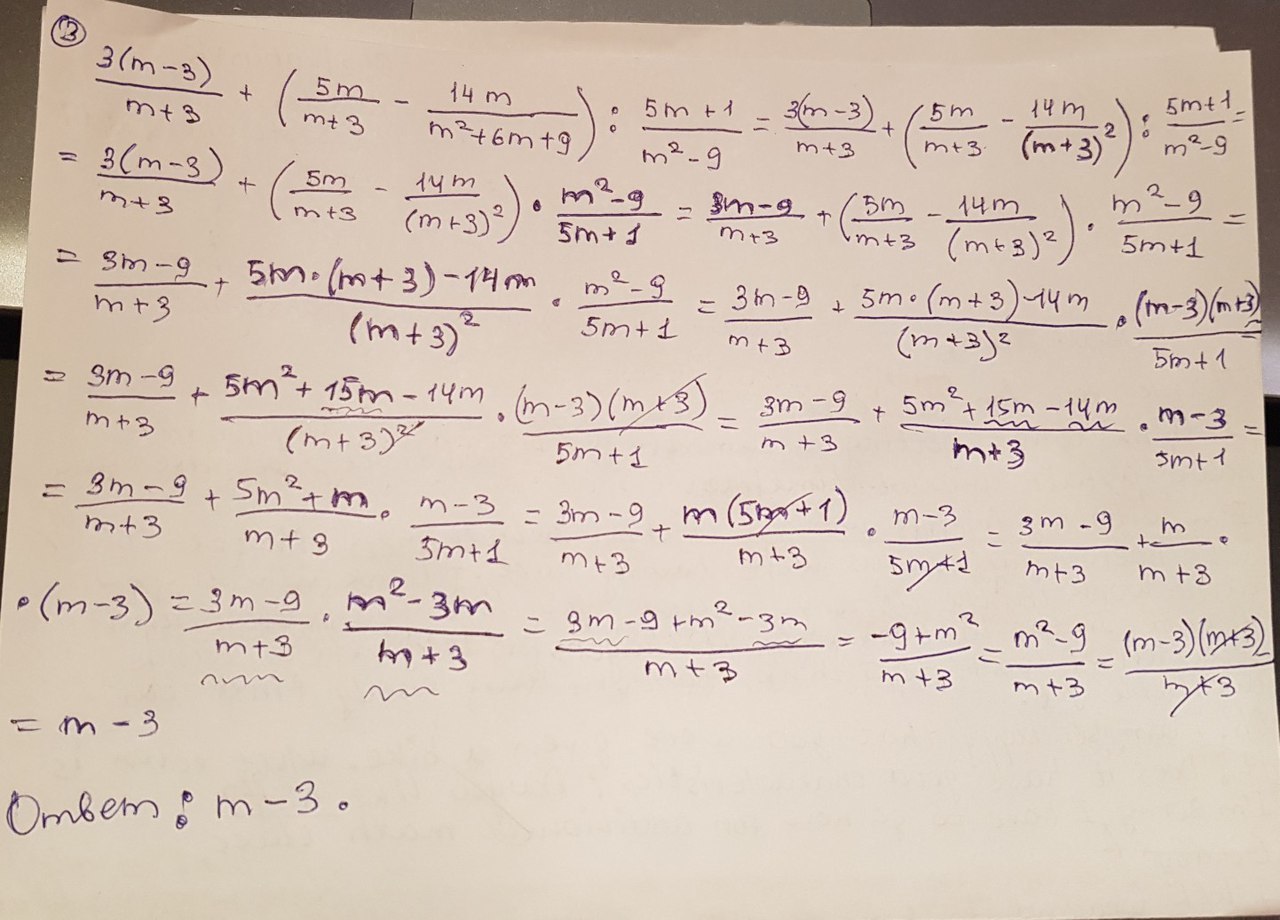 ③
3(m-3)/(m+3) + (5m/(m+3) - 14m/(m²+6m+9)) : (5m+1)/(m²-9) = 3(m-3)/(m+3) + (5m/(m+3) - 14m/(m+3)²) : (5m+1)/(m²-9) =
= 3(m-3)/(m+3) + (5m/(m+3) - 14m/(m+3)²) · (m²-9)/(5m+1) = (3m-9)/(m+3) + (5m/(m+3) - 14m/(m+3)²) · (m²-9)/(5m+1) =
= (3m-9)/(m+3) + (5m·(m+3)-14m)/(m+3)² · (m²-9)/(5m+1) = (3m-9)/(m+3) + (5m·(m+3)-14m)/(m+3)² · (m-3)(m+3)/(5m+1) =
= (3m-9)/(m+3) + (5m²+15m-14m)/(m+3)² · (m-3)(m+3)/(5m+1) = (3m-9)/(m+3) + (5m²+15m-14m)/(m+3) · (m-3)/(5m+1) =
= (3m-9)/(m+3) + (5m²+m)/(m+3) · (m-3)/(5m+1) = (3m-9)/(m+3) + m(5m+1)/(m+3) · (m-3)/(5m+1) = (3m-9)/(m+3) + m/(m+3) ·
· (m-3) = (3m-9)/(m+3) · (m²-3m)/(m+3) = (3m-9+m²-3m)/(m+3) = (-9+m²)/(m+3) = (m²-9)/(m+3) = (m-3)(m+3)/(m+3)
= m-3
Ответ: m-3.